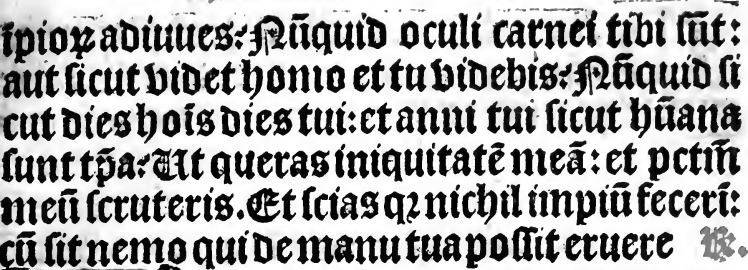 īpioꝝ adiuues: Nūquid oculi carnei tibi sūt:
aut sicut videt homo et tu videbis: Nūquid si
cut dies hoīs dies tui: et anni tui sicut hūana
sunt tp̄a: Ut queras iniquitatē meā: et pctm̄
meū scruteris. Et scias qꝛ nichil impiū fecerī:
cū sit nemo qui de manu tua possit eruere